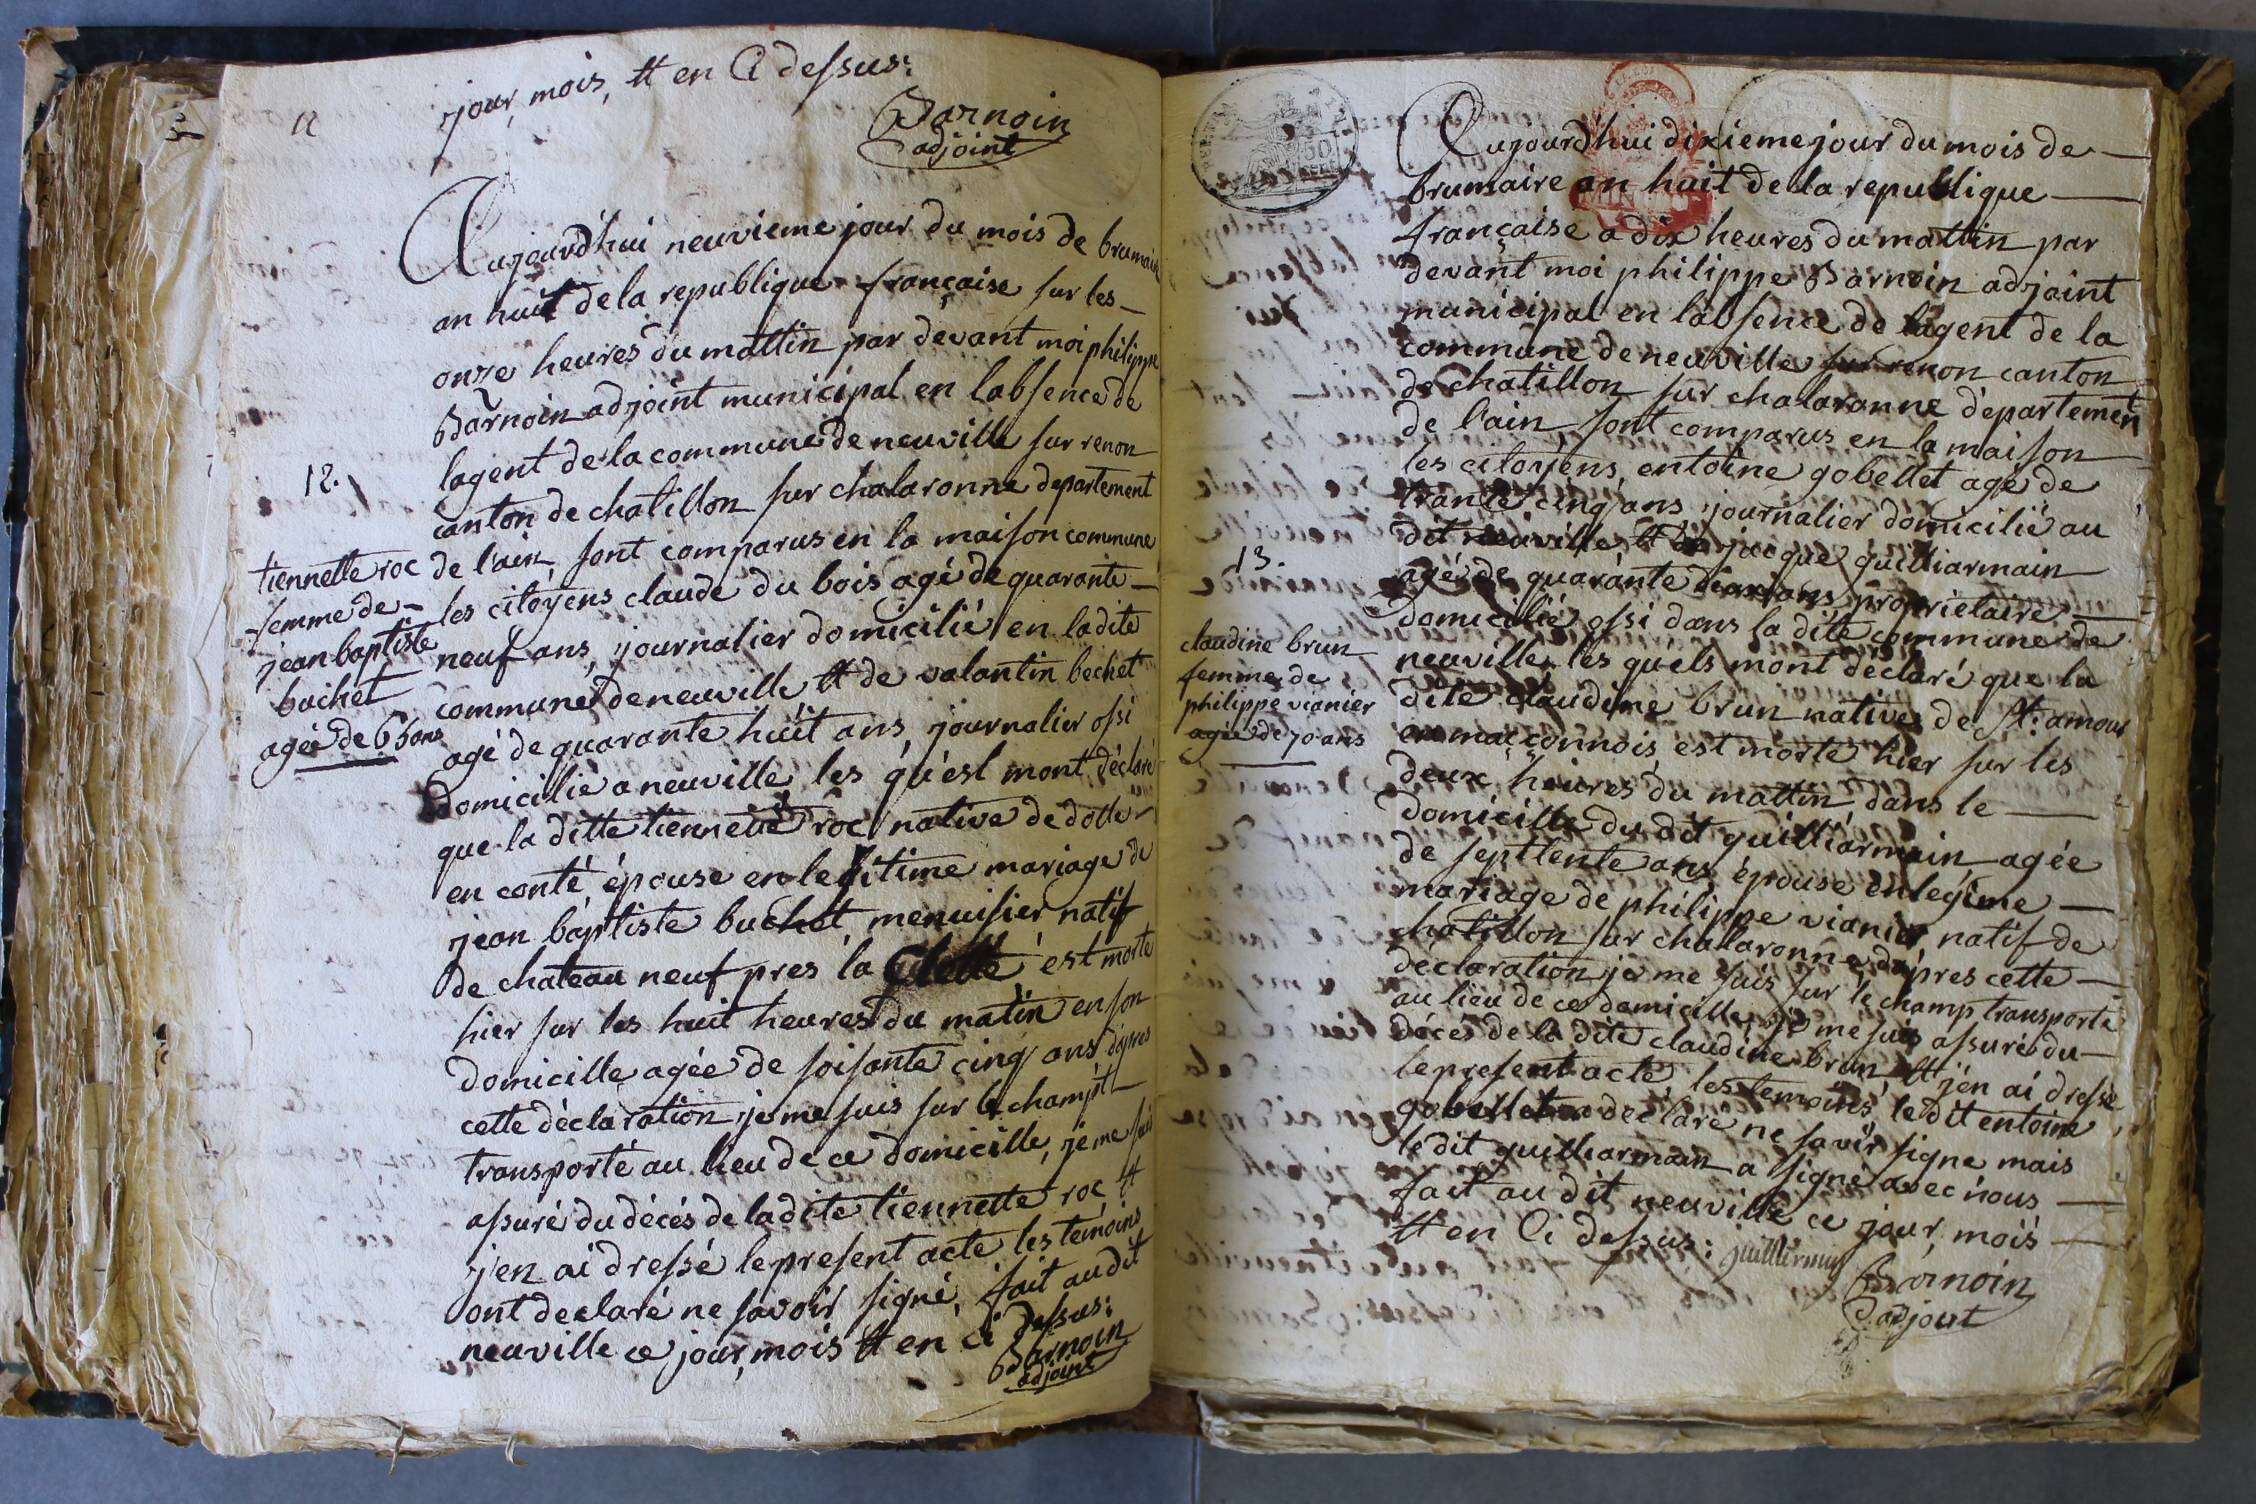 12
jour, mois, tt en Ci dessus:
Barnoin
adjoint
Aujourd'hui neuvieme jour du mois de brumaire
an huit de la republique française sur les
onze heures du mattin par devant moi philippe
Barnoin adjoint municipal en labsence de
lagent de la commune de neuville sur renon
canton de chatillon sur chalaronne departement
de l'ain, sont comparus en la maison commune
les citoyens claude du bois agé de quarante
neuf ans, journalier domicilié en la dite
commune de neuville tt de valantin bechet
agé de quarante huit ans, journalier ossi
domicilié a neuville, les qu'est mont déclaré
que la ditte tiennette roc, native de dolle
en conté, épouse en legitime mariage de
jean baptiste buchet, menuisier, natif
de chateau neuf pres la Clette, est morte
hier sur les huit heures du matin en son
domicille agée de soisante cinq ans d'apres
cette déclaration, je me suis sur le champt
transporté au lieu de ce domicille, je me suis
assuré du décés de la dite tiennette roc, tt
j'en ai dressé le present acte, les temoins
ont declaré ne savoir signé, fait au dit
neuville ce jour, mois tt en Ci dessus:
Barnoin
adjoint
12.
tiennette roc
femme de
jean baptiste
buchet
agée de 65 ans
Aujourd'hui dixieme jour du mois de
brumaire an huit de la republique
française a dix heures du mattin par
devant moi philippe Barnoin adjoint
municipal en labsence de lagent de la
commune de neuville sur renon canton
de chatillon sur chalaronne departement
de l'ain, sont comparus en la maison
les citoyens, entoine gobellet agé de
trante cinq ans, journalier domicilié au
dit neuville, tt de jacque guilliarmain
agé de quarante deux ans, proprietaire
domicilié ossi dans la dite commune de
neuville les quels mont déclaré que la
dite claudine brun native de St: amour
en macconnois est morte hier sur les
deux heures du mattin dans le
domicille du dit guilliarmain agée
de septtente ans, épouse en legime
mariage de philippe vianier, natif de
chatillon sur chalaronne, d'apres cette
déclaration, je me suis sur le champ transporté
au lieu de ce domicille, je me suis assuré du
décés de la dite claudine brun, tt j'en ai dressé
le present acte, les temoins, le dit entoine
gobellet a declaré ne savoir signe mais
le dit guilliarmain a signé avec nous
fait au dit neuville ce jour, mois
tt en Ci dessus: guillermin
Barnoin
adjoint
13.
claudine brun
femme de
philippe vianier
agée de 70 ans